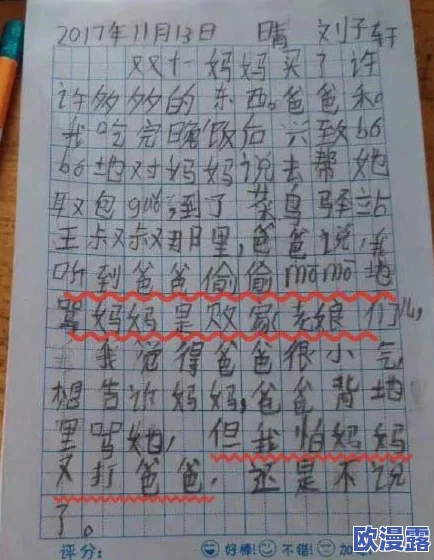 2017年11月13日 晴 刘子轩
双十一妈妈买了许
许多多的东西。爸爸和。
我吃完晚饭后兴致bó
bó地对妈妈说去帮她
取包guǒ,到了菜鸟驿站
王叔叔那里,爸爸说,我
听到爸爸偷偷mōmō地
骂妈妈是败家老娘们儿,
我觉得爸爸很小气,
想告诉妈妈,爸爸背地
里骂她,但我怕妈妈
又打爸爸,还是不说
了。
评分: 好棒! 不错! 加
欧漫露